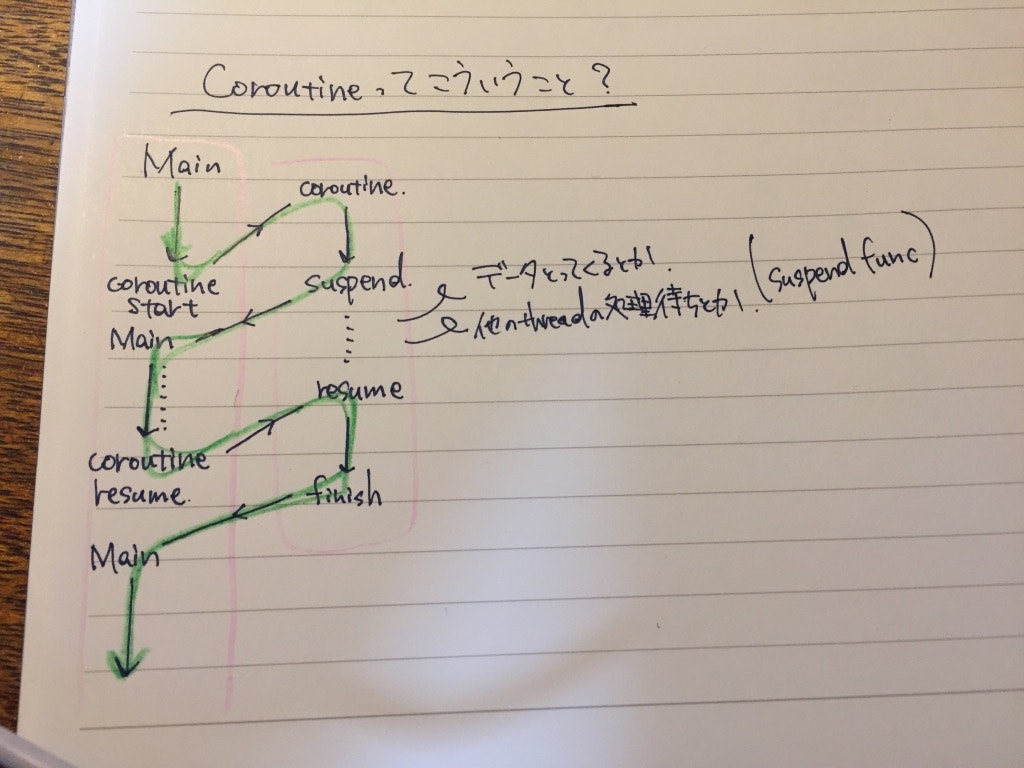 Coroutineってこういうこと？
Main
coroutine.
coroutine
start
suspend.
データとってくるとか!
他のthreadの処理待ちとか!
(suspend func)
Main
resume
coroutine
resume.
finish
Main